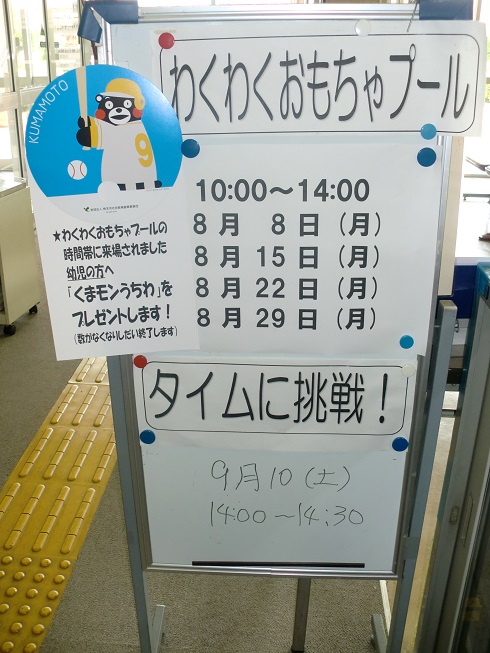 わくわくおもちゃプール
10:00～14:00
8月 8日（月）
8月15日（月）
8月22日（月）
8月29日（月）
KUMAMOTO
9
★わくわくおもちゃプールの
時間帯に来場されました
幼児の方へ
「くまモンうちわ」を
プレゼントします！
（数がなくなりしだい終了します）
タイムに挑戦！
9月10（土）
14:00～14:30